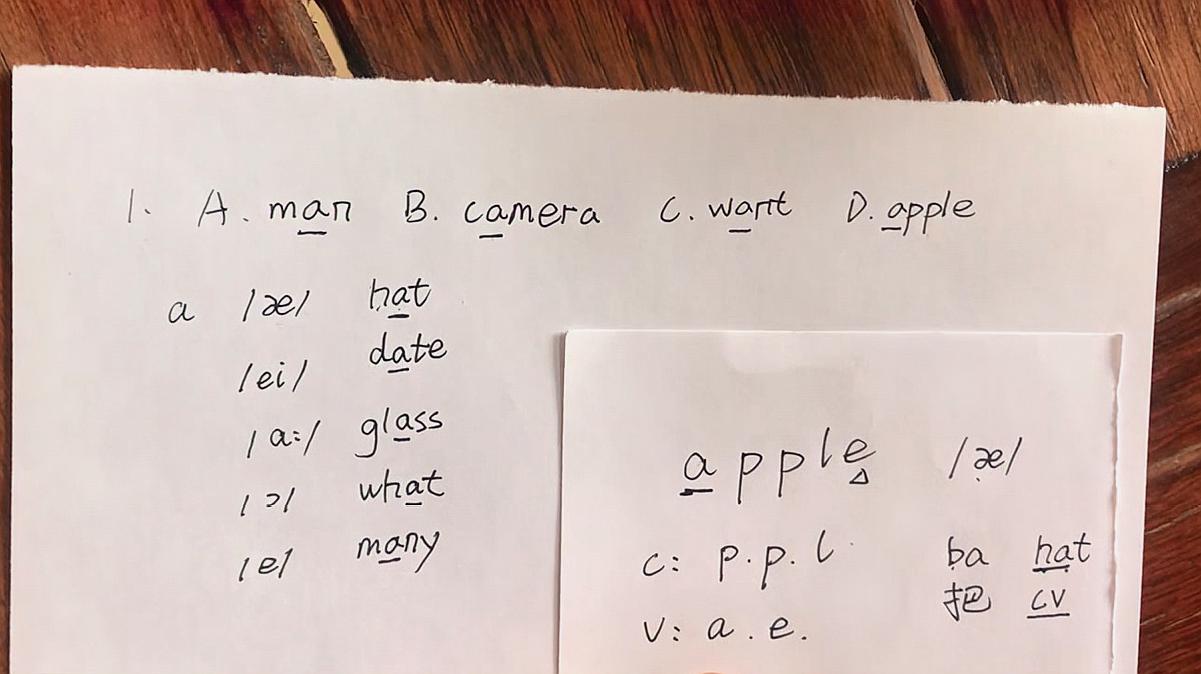 1. A. man B. camera C. want D. apple
a /æ/ hat
/ei/ date
/a:/ glass
/ɔ/ what
/e/ many
apple /æ/
c: p.p.l
v: a.e.
ba hat
把 cv